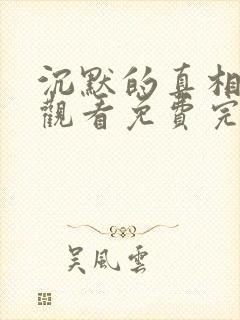 沉默的真相
觀看免費完
吴風雲